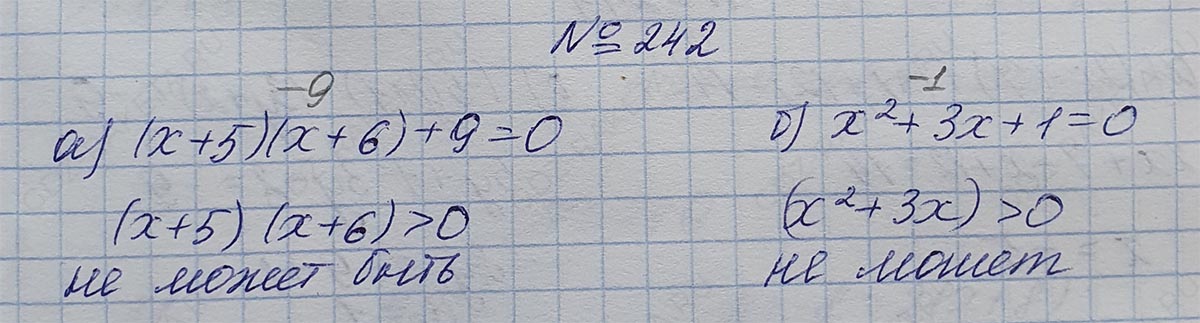 № 242
-9
а) (x+5)(x+6)+9=0
(x+5) (x+6)>0
не может быть
-1
б) x²+3x+1=0
(x²+3x)>0
не может